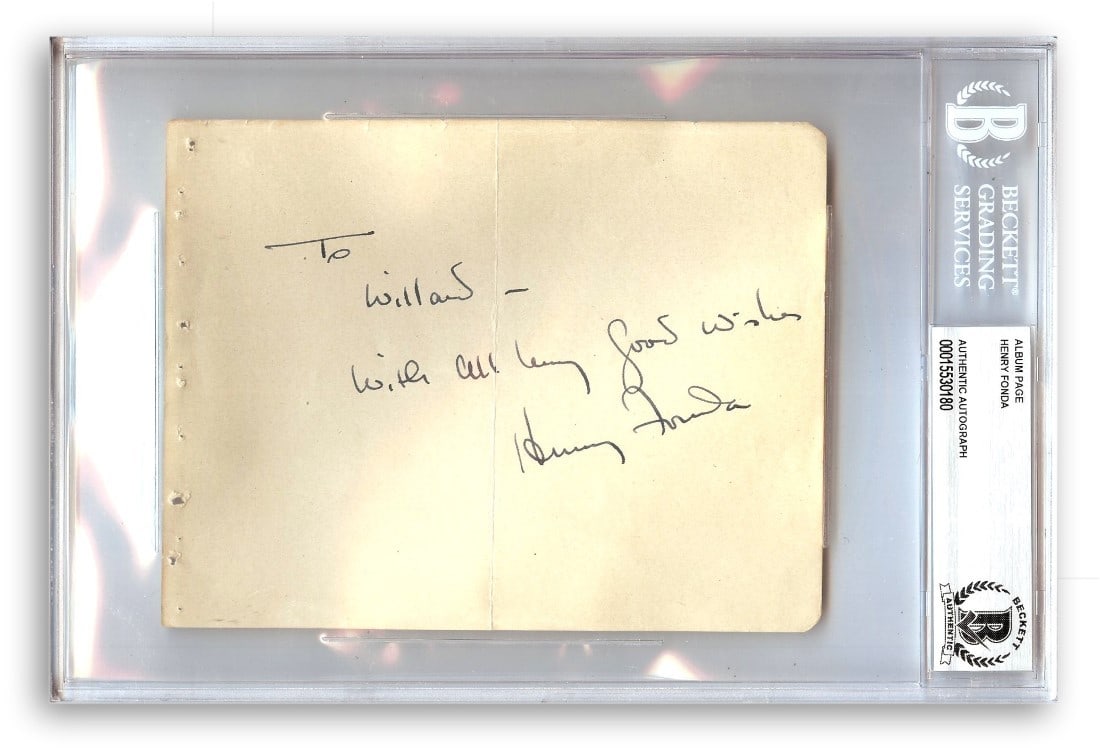 To
Willard –
With all my good wishes
Henry Fonda
BECKETT®
GRADING
SERVICES
ALBUM PAGE
HENRY FONDA
AUTHENTIC AUTOGRAPH
00015530180
BECKETT
AUTHENTIC